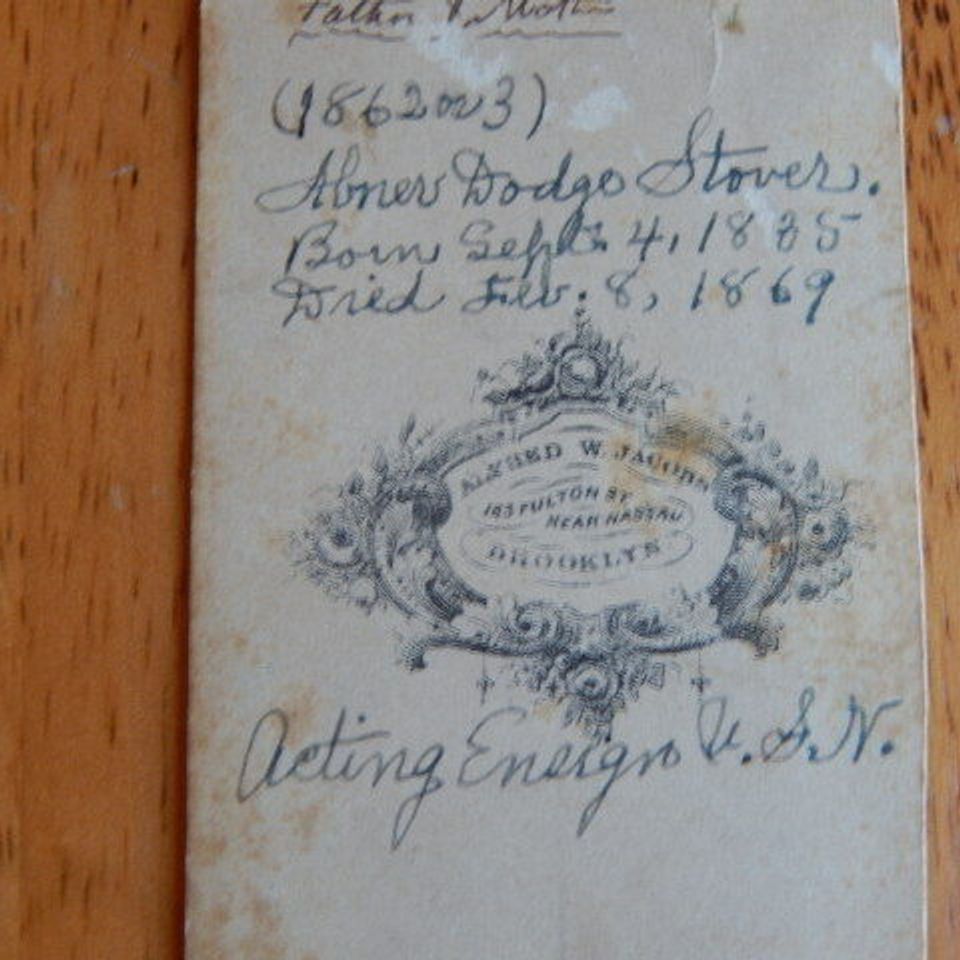 Father & Mother
(1862 or 3)
Abner Dodge Stover.
Born Sept. 4, 1835
Died Feb. 8, 1869
ALFRED W. JACOBS
FULTON ST
NEAR NASSAU
BROOKLYN
Acting Ensign U.S.N.